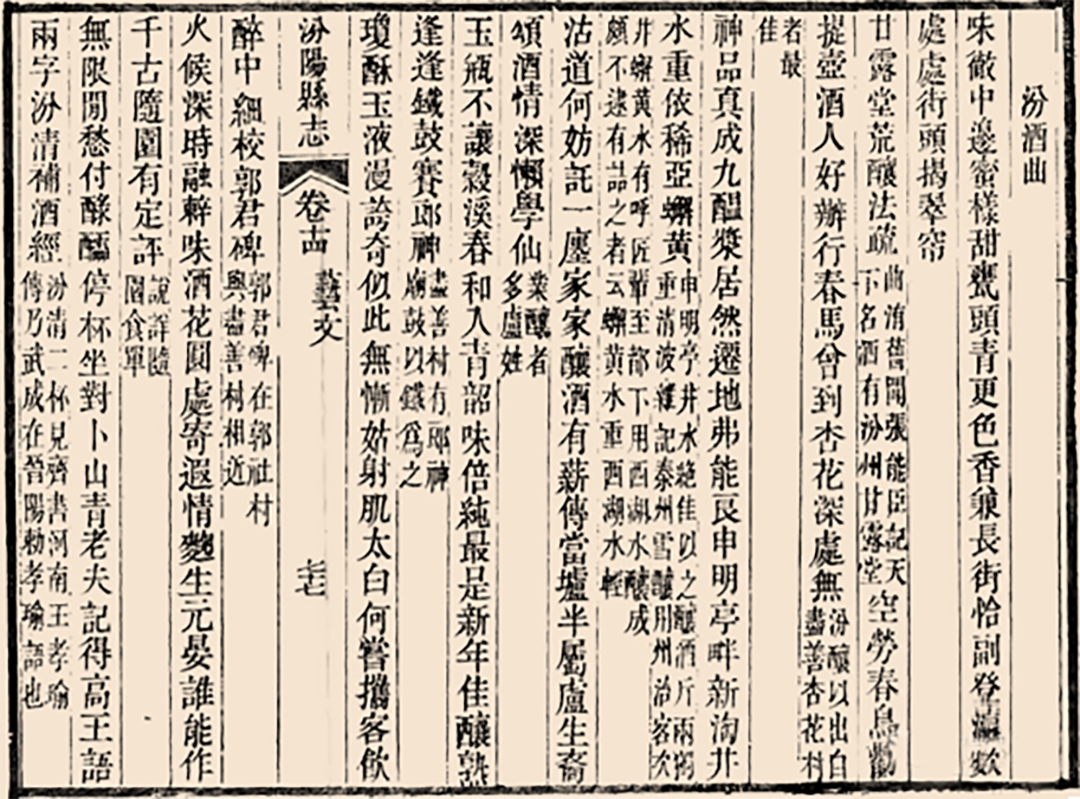 汾酒曲
味徹中邊蜜樣甜甕頭青更色香兼長街恰副登瀛數
處處街頭揭翠帘
甘露堂荒釀法疏曲洧舊聞張能臣記天下名酒有汾州甘露堂空勞春鳥勸
提壺酒人好辦行春馬曾到杏花深處無汾釀以出白盡善杏花村
者最佳
神品真成九醞漿居然遷地弗能良申明亭畔新淘井
水重依稀亞蠏黃申明亭井水絕佳以之釀酒斤兩獨重清波雜記泰州雪醅用州治客次
井蠏黃水有呼匠輩至都下用西湖水釀成頗不逮有詰之者云蠏黃水重西湖水輕
沽道何妨託一廛家家釀酒有薪傳當壚半屬盧生裔
頌酒情深懶學仙業釀者多盧姓
玉瓶不讓穀溪春和入青韶味倍純最是新年佳釀熟
逢逢鐵鼓賽郎神盡善村有郎神廟鼓以鐵為之
瓊酥玉液漫誇奇似此無慚姑射肌太白何嘗攜客飲
汾陽縣志 卷十四 藝文
醉中細校郭君碑郭君碑在郭社村與盡善村相近
火候深時融味酒花圓處寄遐情麴生元晏誰能作
千古隨園有定評說詳隨園食單
無限閒愁付醁醽停杯坐對卜山青老夫記得高王語
兩字汾清補酒經汾清二杯見齊書河南王孝瑜傳乃武成在晉陽勅孝瑜語也